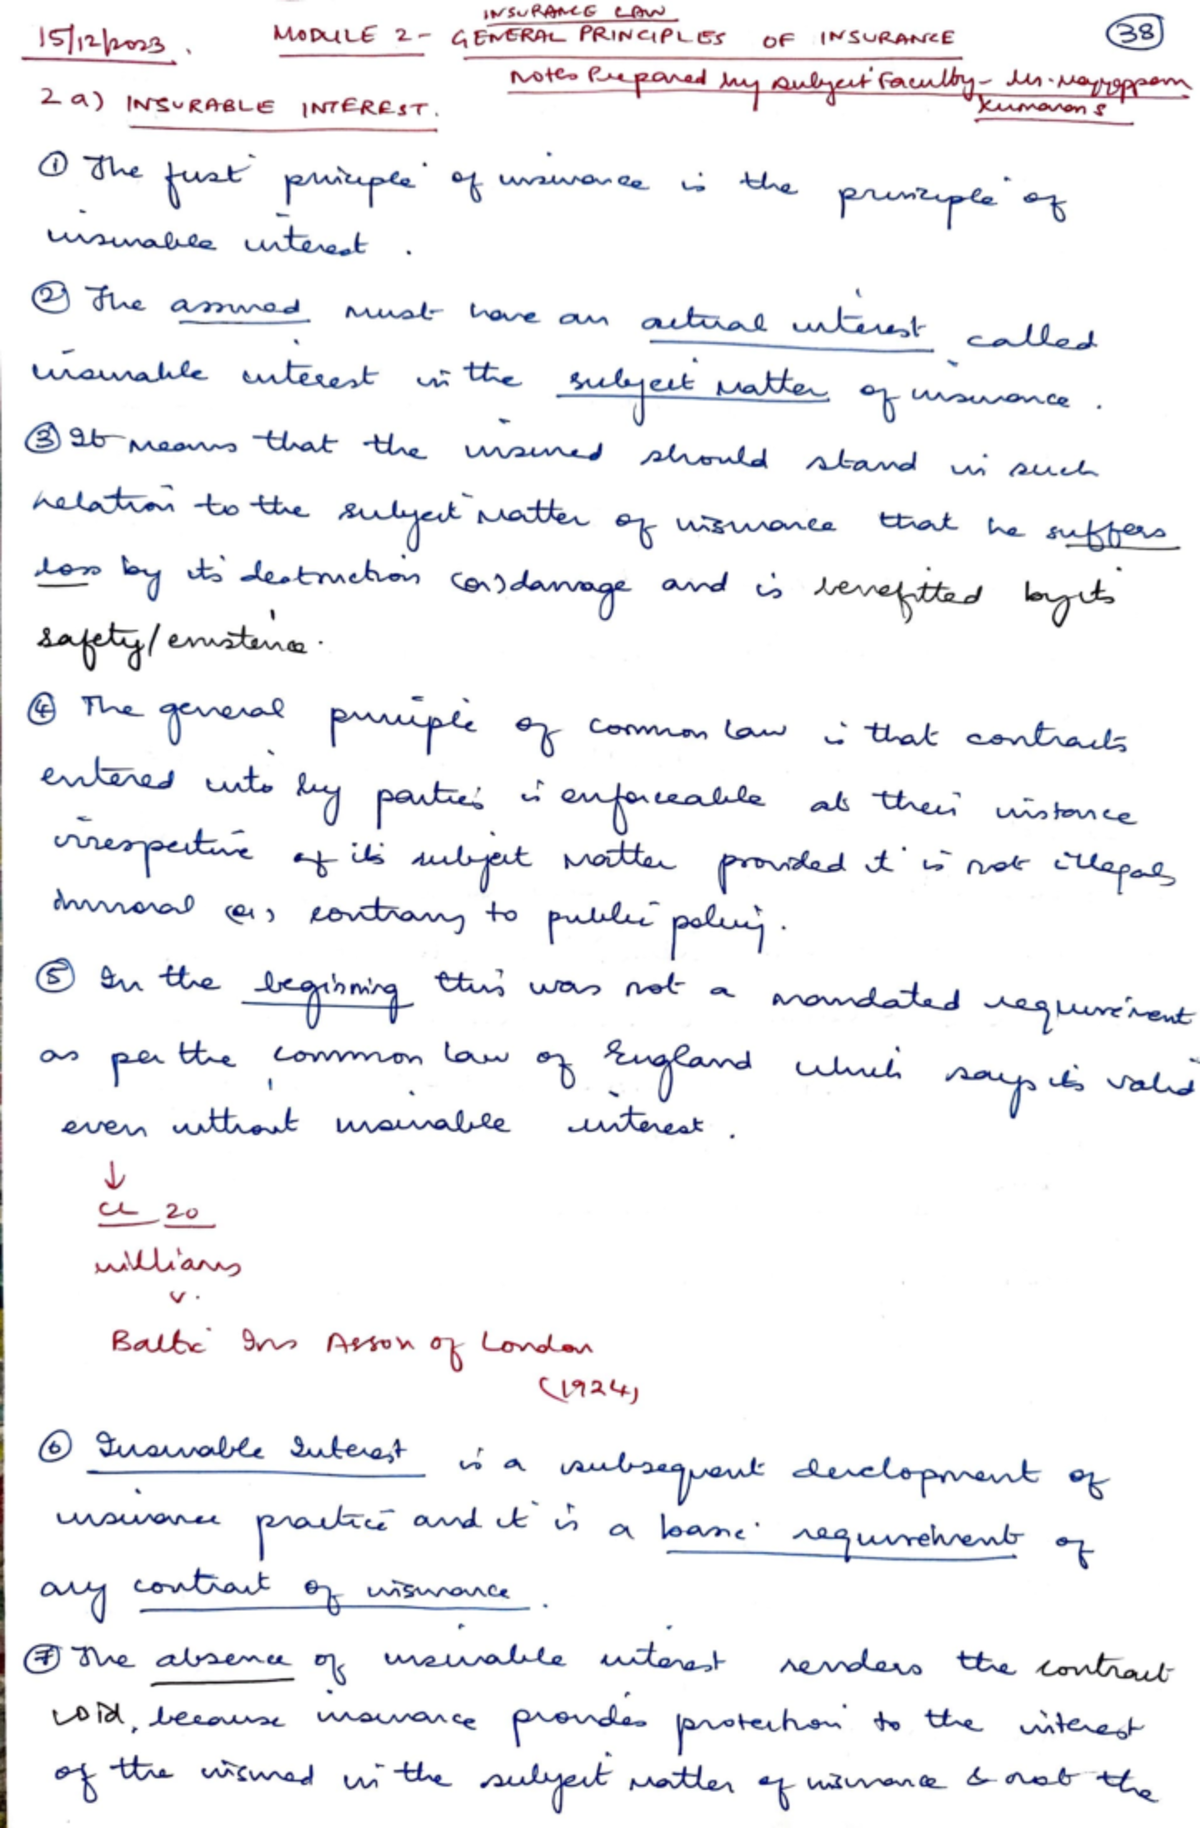 INSURANCE LAW
15/12/2023. MODULE 2 - GENERAL PRINCIPLES OF INSURANCE 38
Notes Prepared by Subject Faculty - Mr.
Kumaran S
2 a) INSURABLE INTEREST.
① The first principle of insurance is the principle of
insurable interest.
② The assured must have an actual interest called
insurable interest in the subject matter of insurance.
③ It means that the insured should stand in such
relation to the subject matter of insurance that he suffers
loss by its destruction (or) damage and is benefitted by its
safety/existence.
④ The general principle of common law is that contracts
entered into by parties is enforceable at their instance
irrespective of its subject matter provided it is not illegal,
immoral (or) contrary to public policy.
⑤ In the beginning this was not a mandated requirement
as per the common law of England which says its valid
even without insurable interest.
↓
CL 20
Williams
v.
Baltic Ins Asson of London
(1924)
⑥ Insurable Interest is a subsequent development of
insurance practice and it is a basic requirement of
any contract of insurance.
⑦ The absence of insurable interest renders the contract
void, because insurance provides protection to the interest
of the insured in the subject matter of insurance & not the